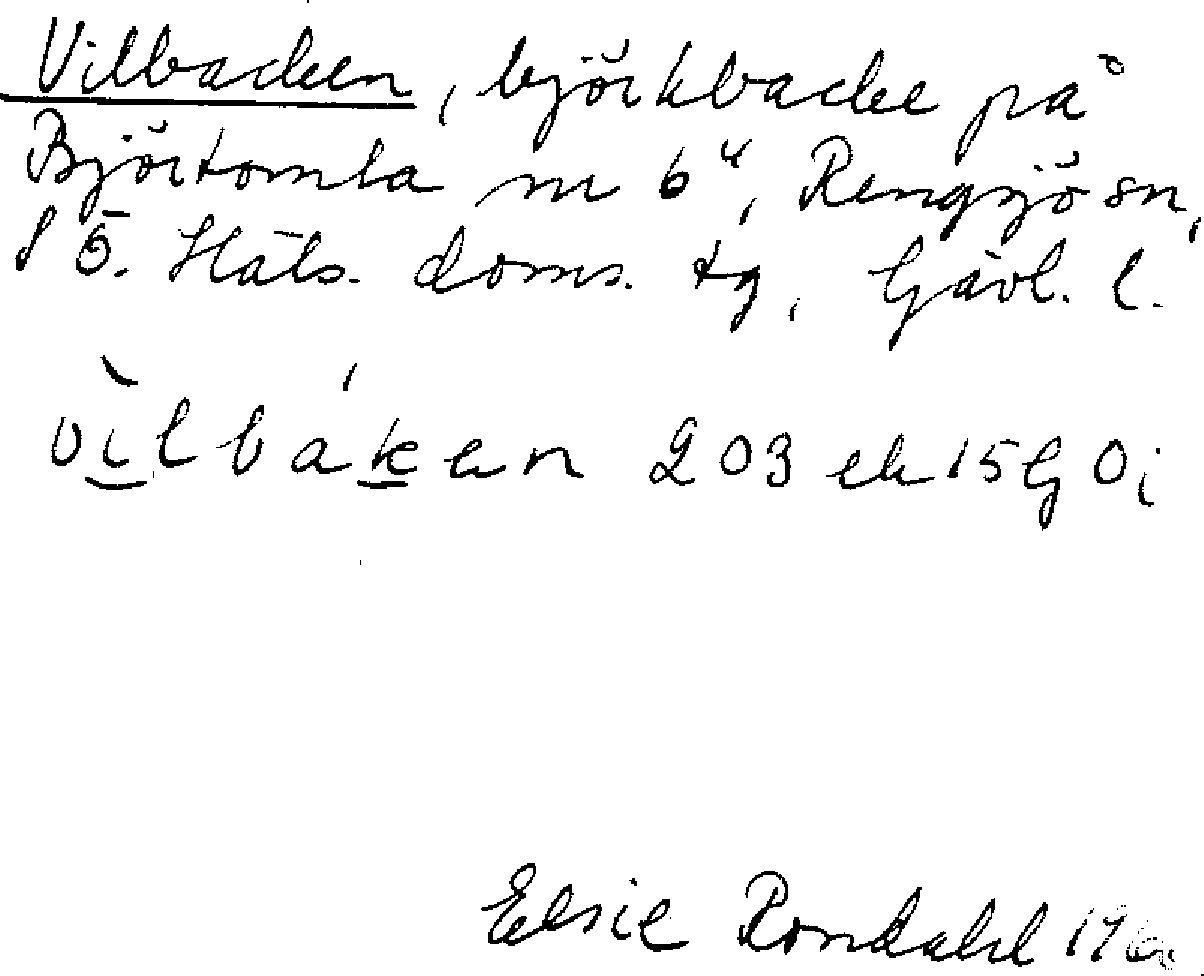 Vilbacken, björkbacke på
Björtomta nr 6⁴, Rengsjö sn,
S Ö. Häls. doms. tg, Gävl. l.
vìlbák̲en 203 ek 15G0i
Elsie Rondahl 196